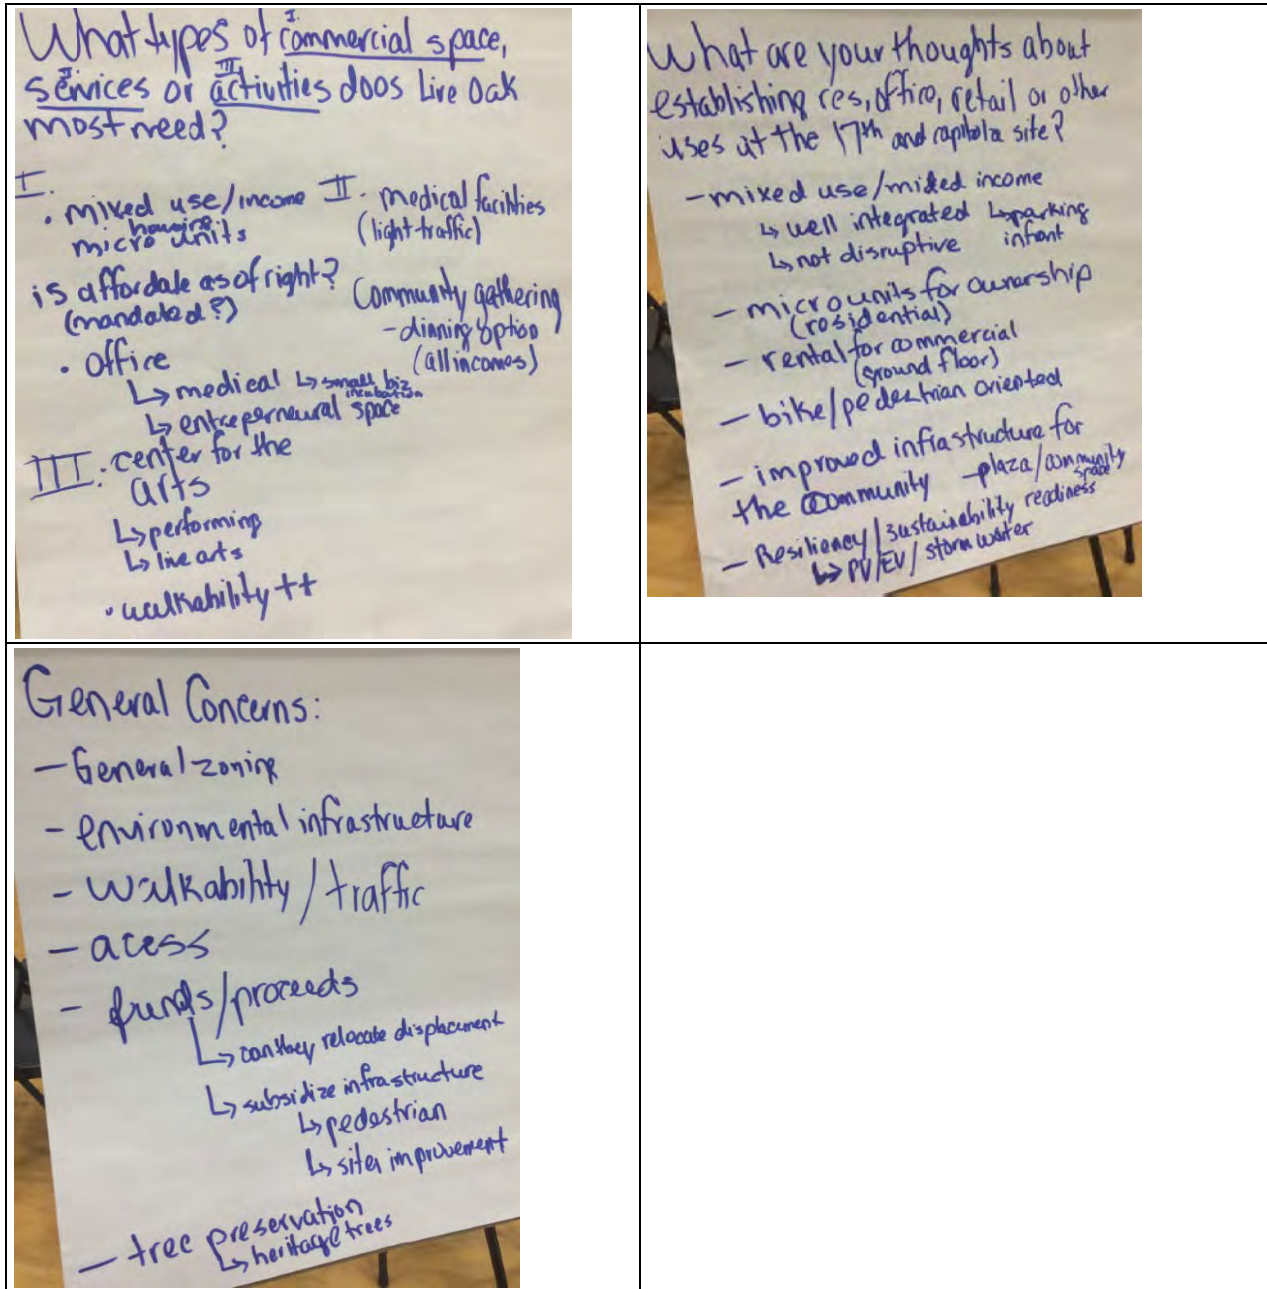 What types of commercial space,
I.
services or activities doos Live Oak
II III
most need?
I.
• mixed use/income
housing
micro units
is affordale as of right?
(mandated?)
• Office
↳ medical ↳ small biz
incubation
↳ entreperneural space
II - medical facilities
(light traffic)
Community gathering
- dinning option
(all incomes)
III. center for the
arts
↳ performing
↳ live arts
• walkability ++
What are your thoughts about
establishing res, office, retail or other
uses at the 17th and capitola site?
- mixed use/mixed income
↳ well integrated ↳ parking
in front
↳ not disruptive
- micro units for ownership
(residential)
- rental for commercial
(ground floor)
- bike/pedestrian oriented
- improved infrastructure for
the community - plaza/community
space
- Resiliency/sustainability readiness
↳ PV/EV/storm water
General Concerns:
- General zoning
- environmental infrastructure
- walkability/traffic
- acess
- funds/proceeds
↳ can they relocate displacment
↳ subsidize infrastructure
↳ pedestrian
↳ site improvement
- tree preservation
↳ heritage trees